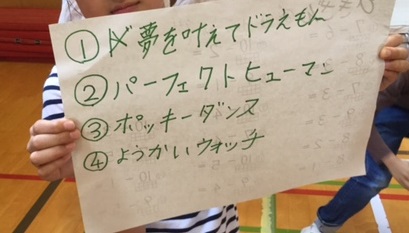 ① 夢を叶えてドラえもん
② パーフェクトヒューマン
③ ポッキーダンス
④ ようかいウォッチ